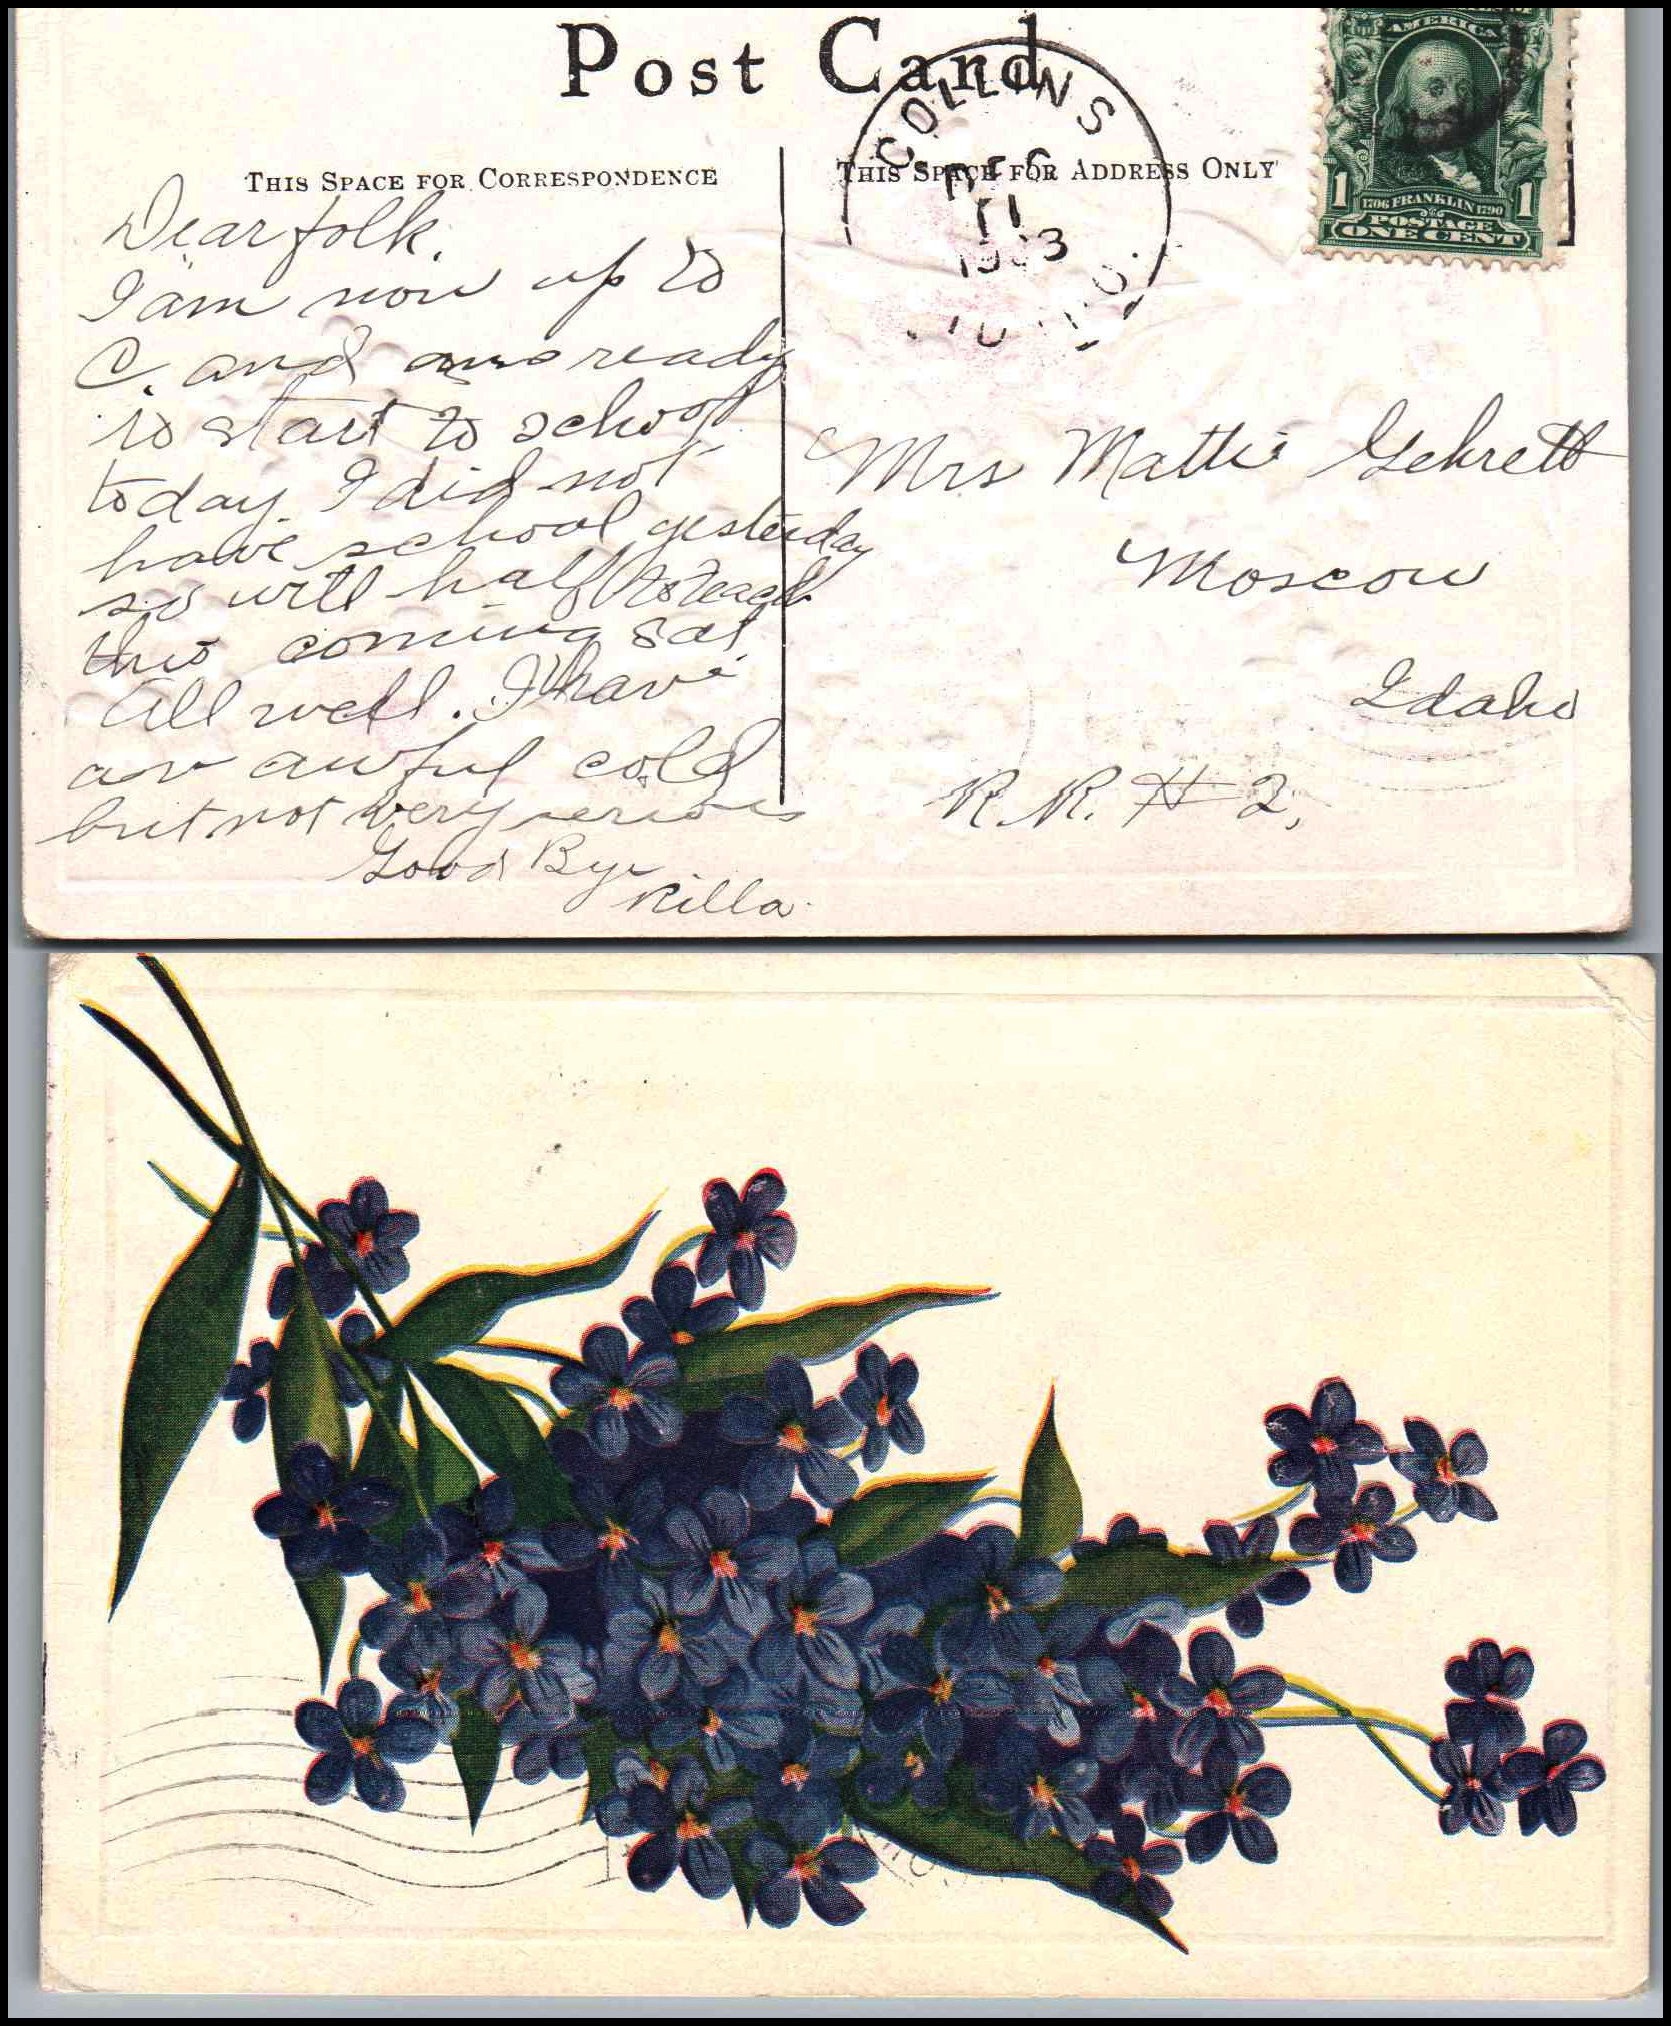 Post Card
COLLINS
11
THIS SPACE FOR CORRESPONDENCE
THIS SPACE FOR ADDRESS ONLY
AMERICA
1 1706 FRANKLIN 1790 1
POSTAGE
ONE CENT
Dear folk.
I am now up to
C. and am ready
to start to school
today. I did not
have school yesterday
so will half to teach
this coming Sat.
All well. I have
an awful cold
but not very serious
Good Bye
Rilla.
Mrs Mattie Gehrett
Moscow
Idaho
R. R. # 2,